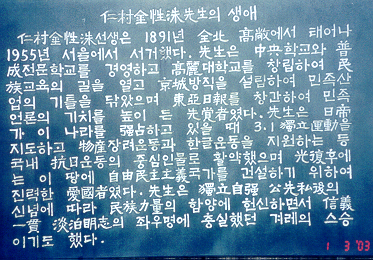 仁村金性洙先生의 생애
仁村金性洙선생은 1891년 全北 高敞에서 태어나
1955년 서울에서 서거했다. 先生은 中央학교와 普
成전문학교를 경영하고 高麗대학교를 창립하여 民
族교육의 길을 열고 京城방직을 설립하여 민족산
업의 기틀을 닦았으며 東亞日報를 창간하여 민족
언론의 기치를 높이 든 先覺者였다. 先生은 日帝
가 이 나라를 强占하고 있을 때 3.1獨立運動을
지도하고 物産장려운동과 한글운동을 지원하는 등
국내 抗日운동의 중심인물로 활약했으며 光復후에
는 이 땅에 自由民主主義국가를 건설하기 위하여
진력한 愛國者였다. 先生은 獨立自强 公先私後의
신념에 따라 民族力量의 함양에 헌신하면서 信義
一貫 淡泊明志의 좌우명에 충실했던 겨레의 스승
이기도 했다.
1 3 '03